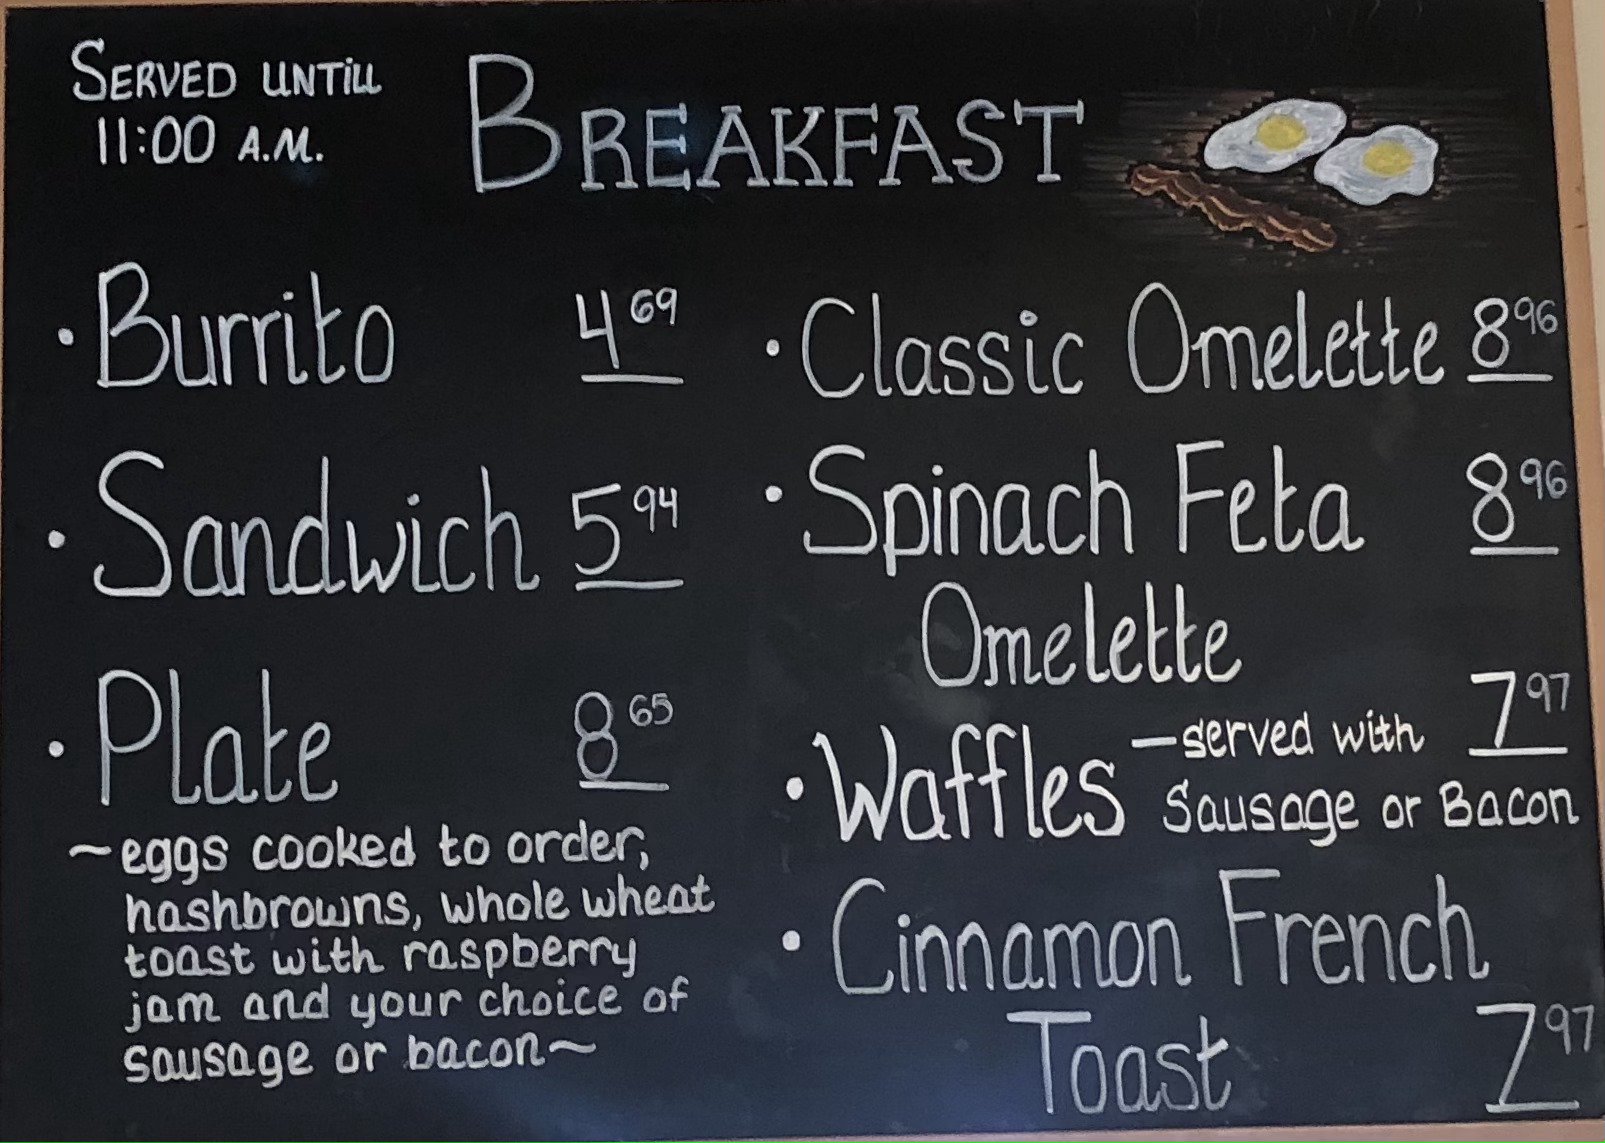 SERVED UNTiLL
11:00 A.M.
BREAKFAST
· Burrito 4 69
· Sandwich 5 94
· Plate 8 65
~eggs cooked to order,
hashbrowns, whole wheat
toast with raspberry
jam and your choice of
sausage or bacon~
· Classic Omelette 8 96
· Spinach Feta 8 96
Omelette
· Waffles —served with 7 97
Sausage or Bacon
· Cinnamon French
Toast 7 97